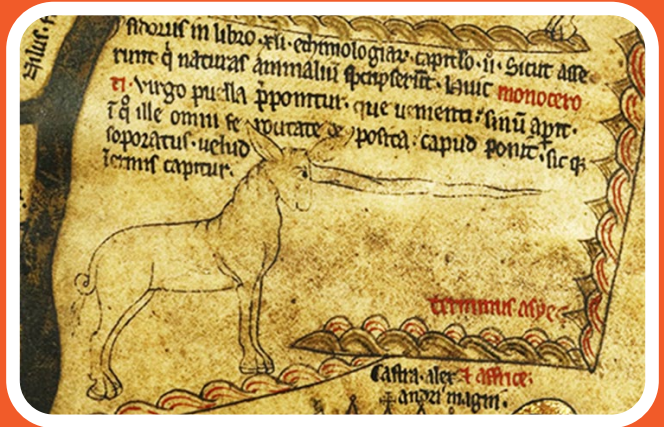 sidorus in libro xii ethimologiar capitlo ii Sicut asse
runt q̇ naturas animaliū Huic monocero
ti Virgo puella p̄ponitur que uenienti sinū apit
ī q̊ ille omni posita capud ponit sic q
soporatus uelud
īermis capitur
terminus asye
Castra alex 7 affrice
andri magni